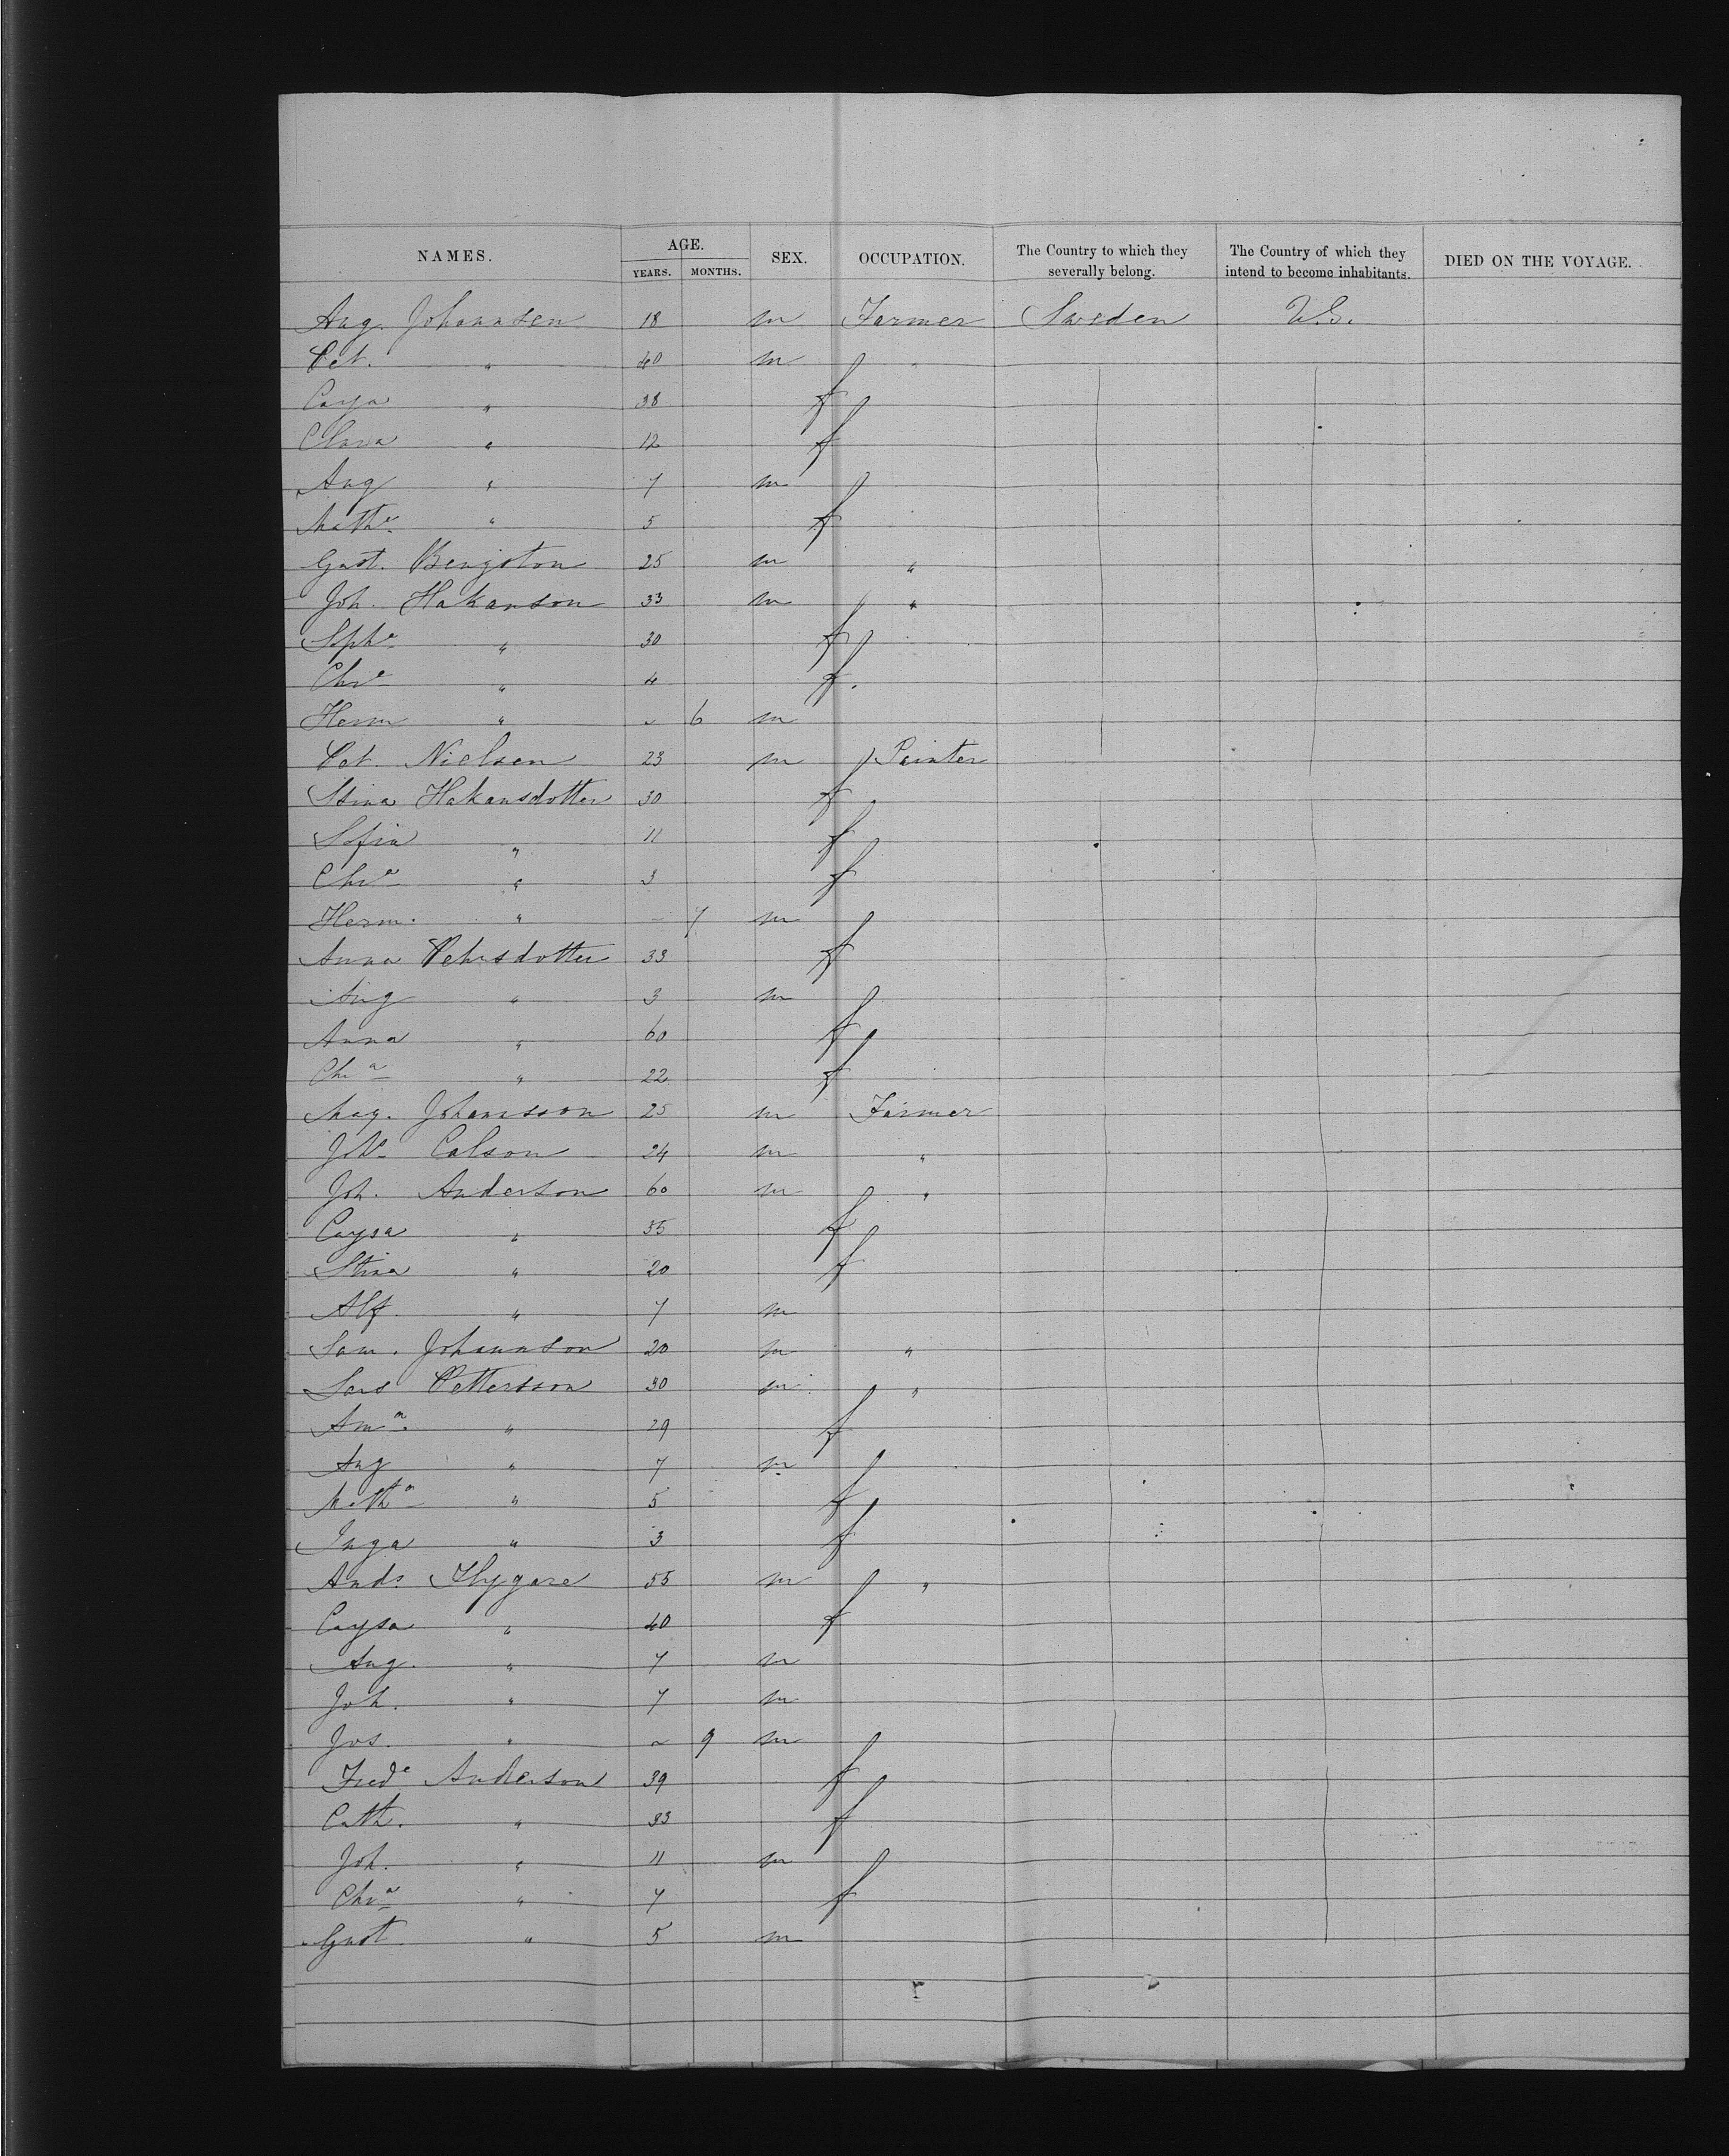 NAMES. AGE. YEARS. MONTHS. SEX. OCCUPATION. The Country to which they severally belong. The Country of which they intend to become inhabitants. DIED ON THE VOYAGE.
Aug. Johannsen 18 m Farmer Sweden U.S.
Pet. " 40 m "
Caya " 38 f
Clara " 12 f
Aug " 7 m
Matha " 5 f
Gust. Bengston 25 m "
Joh. Hakanson 33 m "
Sopha " 30 f
Chra " 4 f.
Herm " " 6 m
Pet. Nielsen 23 m Painter
Stina Hakansdotter 30 f
Sofia " 11 f
Chra " 3 f
Herm. " - 7 m
Anna Pehrsdotter 33 f
Aug " 3 m
Anna " 60 f
Chra " 22 f
Mag. Johansson 25 m Farmer
Colson 24 m "
Joh. Anderson 60 m "
Caysa " 55 f
Stina " 20 f
Alf. " 7 m
Sam. Johannson 20 m "
Lars Pettersson 30 m "
Ama " 29 f
Aug " 7 m
Matha " 5 f
Inga " 3 f
Ands 55 m "
Caysa " 40 f
Aug. " 7 m
Joh. " 7 m
Jos. " " 9 m
Frede Anderson 39 f
Cath. " 33 f
Joh. " 11 m
Chra " 7 f
Gust " 5 m